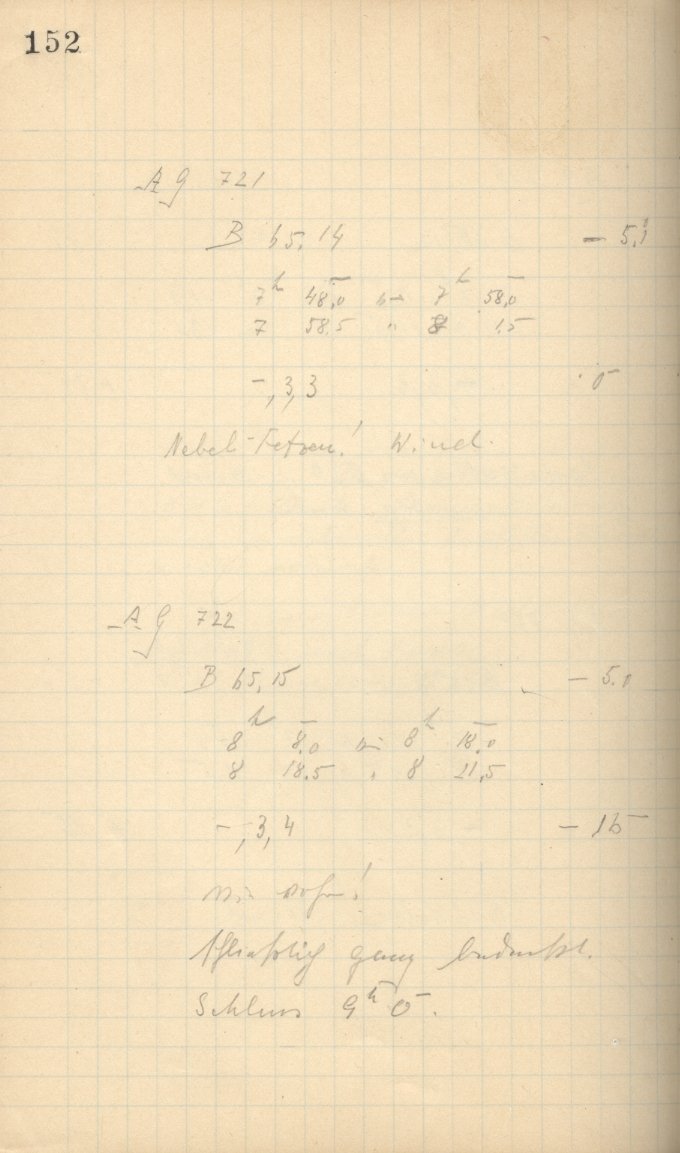 152
AG 721
B 65,14 - 5.1
7h 48,0 bis 7h 58,0
7 58.5 " 8 1.5
-,3,3 0
Nebel-Fetzen! Wind.
AG 722
B 65,15 - 5.0
8h 8,0 bis 8h 18,0
8 18.5 " 8 21,5
-,3,4 -15
Wie vorher!
Schliesslich ganz bedeckt.
Schluss 9h 0.